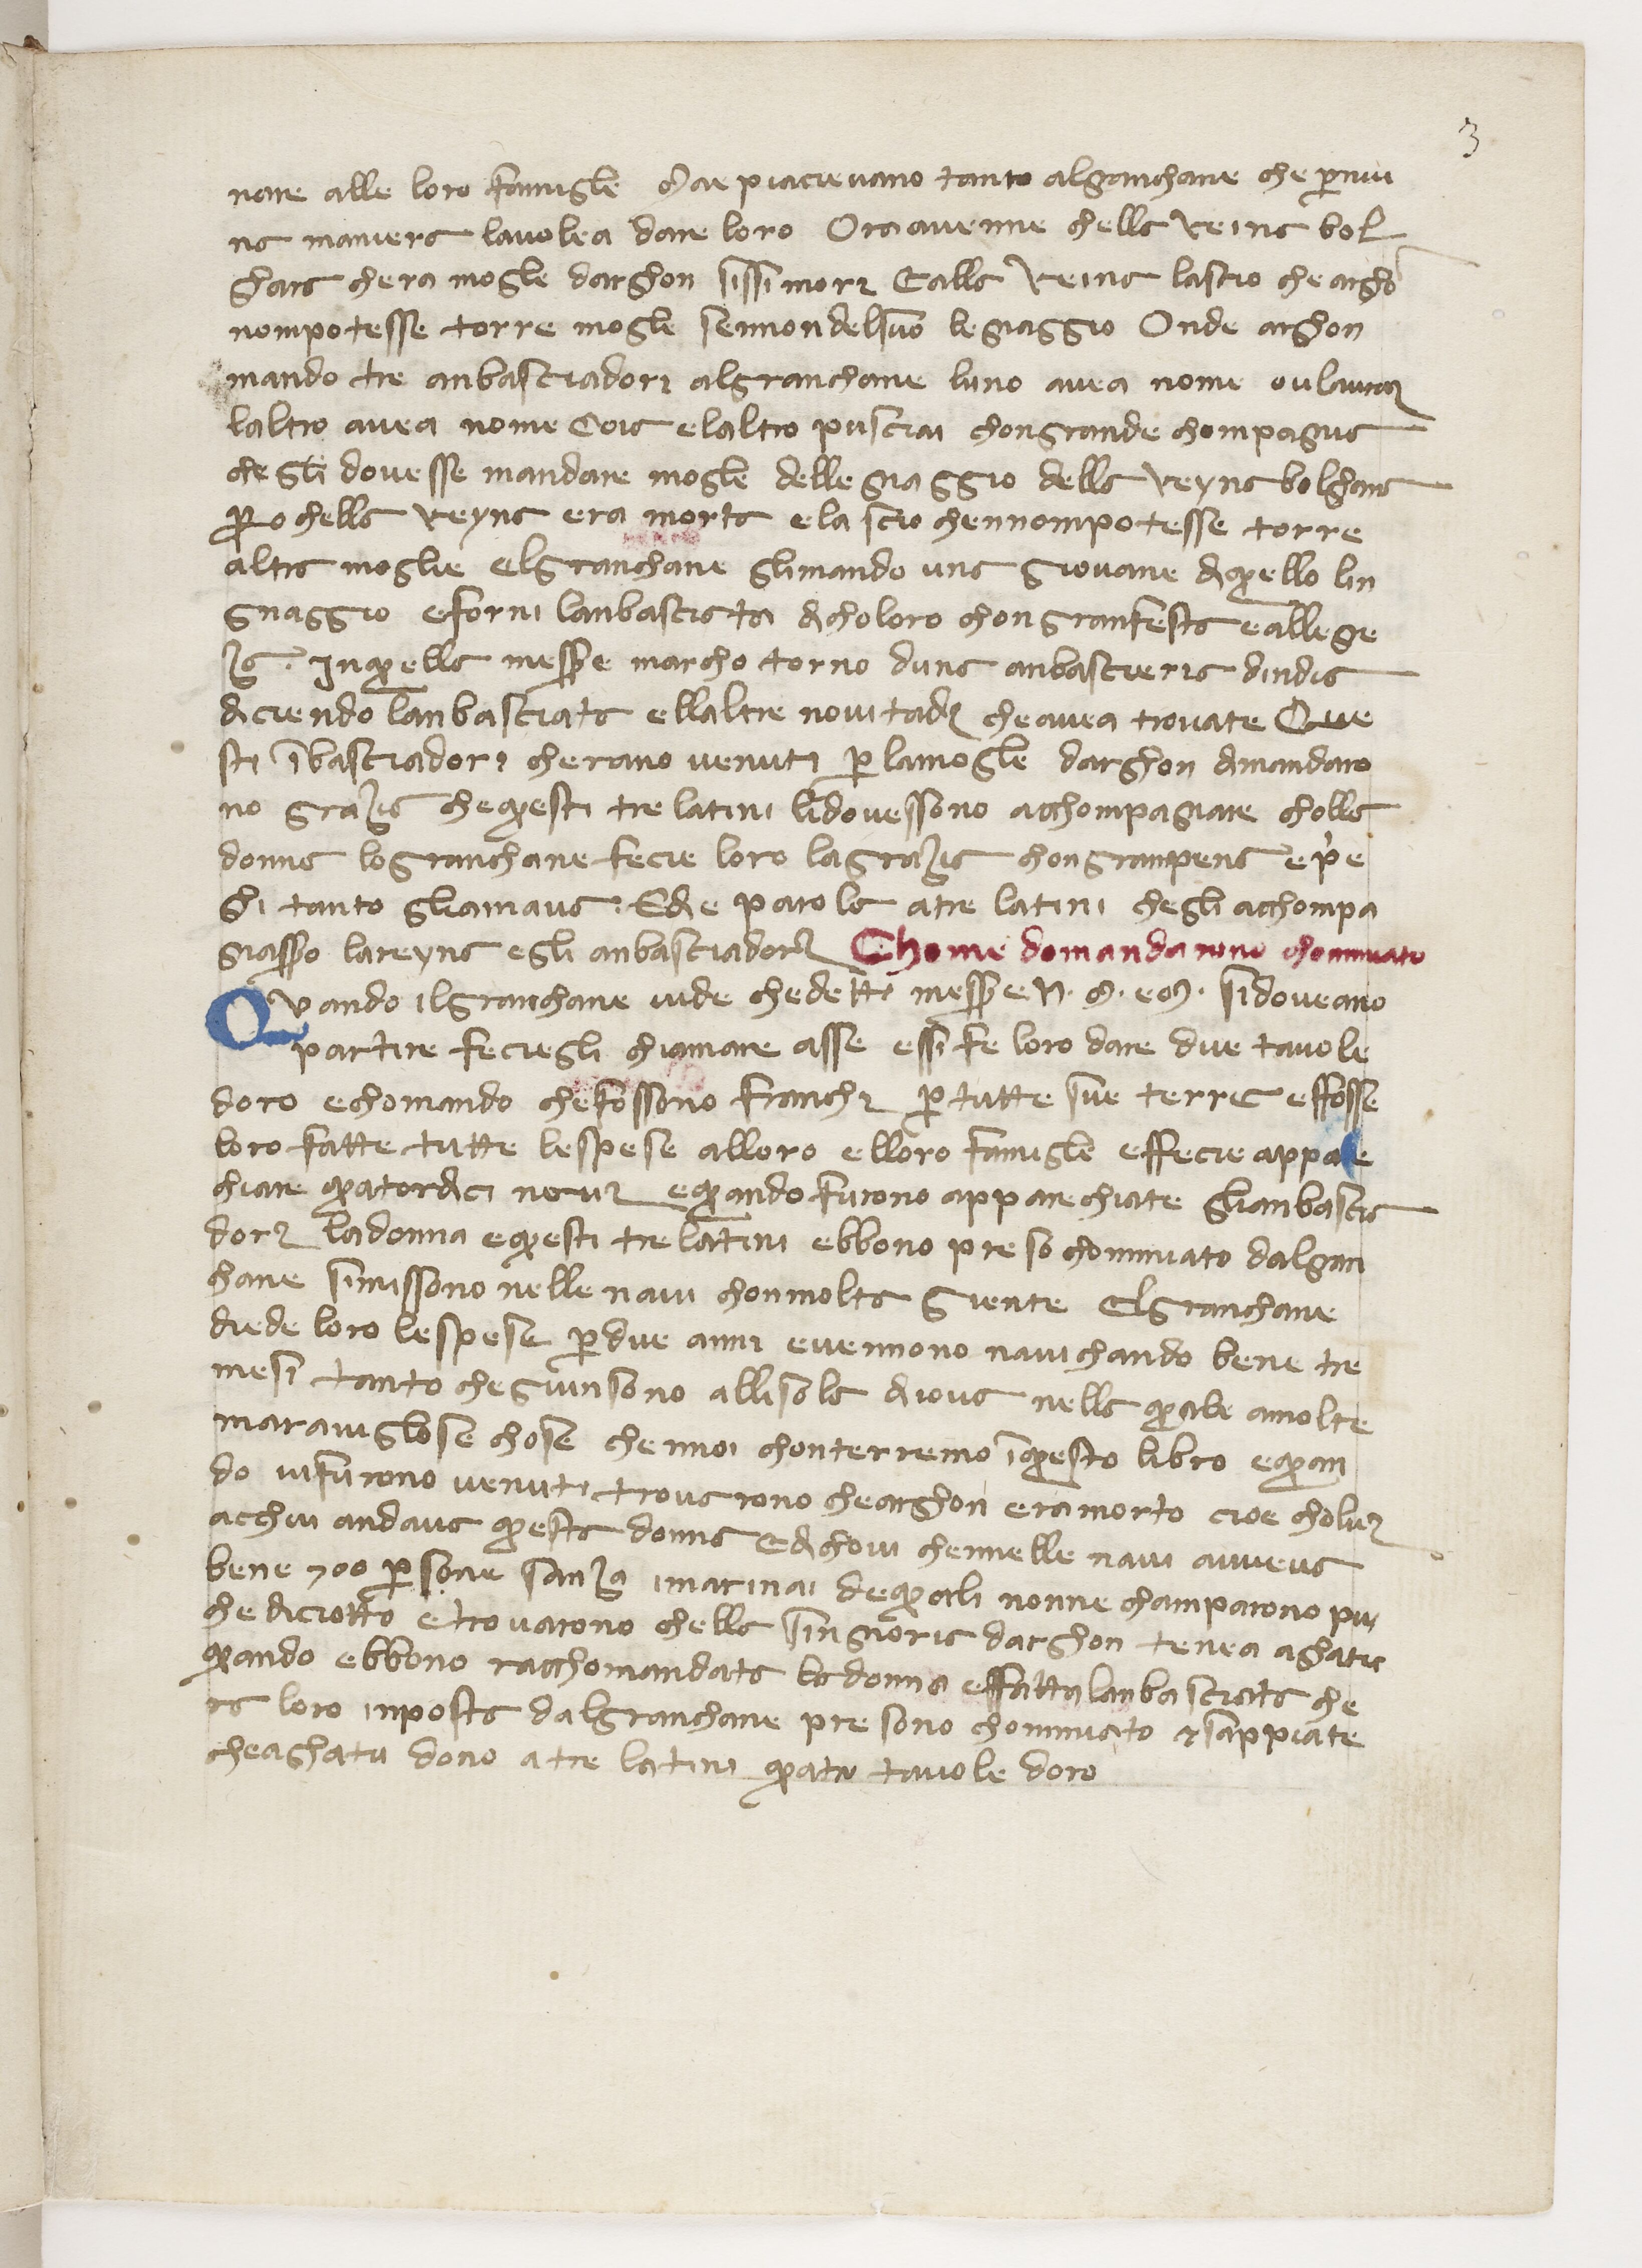 3
nare alle loro famigle Mae piacievano tanto algranchane che p̄niu
na maniera lavolea dare loro Ora avenne chella Reina bol
ghara chera mogle darghon sissi mori Ealla Reina lascio che argho
nompotesse torre mogle sennon delsuo legnaggio Onde arghon
mando tre anbasciadori algranchane luno avea nome oulauai
laltro avea nome Eoia elaltro pusciai chongrande chompagnia
che gli dovesse mandare mogle dellegnaggio della reyna bolghara
ꝑo chella reyna era morta ela scio chennompotesse torre
altra moglie Elgranchane glimando una giovane di q̄llo lin
gnaggio eforni lanbasciata di choloro chon granfesta eallegre
za · Inq̄lla mess̄e marcho torno duna anbascieria dindia
diciendo lanbasciata ellaltre novitadi che avea trovate Que
sti ībasciadori cherano venuti ꝑ lamogle darghon dimandaro
no grazia cheq̄sti tre latini lidovessono acchompagnare cholla
donna logranchane fecie loro lagrazia chon granpena ep̄e
ghi tanto gliamava · Edie parola atre latini chegli acchompa
gnass̄o lareyna egli anbasciadori Chome domandarono chommiato
Quando ilgranchane vide chedetti mess̄e N · M · eM · sidoveano
partire feciegli chiamare asse essi fe loro dare due tavole
doro echomando chefossono franchi ꝑ tutte sue terre effosse
loro fatte tutte lespese alloro elloro famigle effecie appare
chiare q̄tordici navi eq̄ndo furono apparechiate glianbascia
dori ladonna eq̄sti tre latini ebbono preso chommiato dalgran
chane simissono nelle navi chonmolta giente Elgranchane
diede loro lespese ꝑ due anni evennono navichando bene tre
mesi tanto chegiunsono allisola diiava nella q̄le amolte
maraviglose chose chennoi chonterremo īq̄sto libro eq̄n
do vifurono venuti trovarono chearghon eramorto cioe cholui
acchui andava q̄sta donna Edichovi chennelle navi aviveua
bene 700 ꝑsone sanza imarinai deq̄li nonne champarono piu
che diciotto etrovarono chella singnoria darghon tenea aghatu
q̄ndo ebbono racchomandata la donna effatta lanbasciata che
ra loro inposta dalgranchane presono chommiato esappiate
cheaghatu dono atre latini q̄tro tavole doro